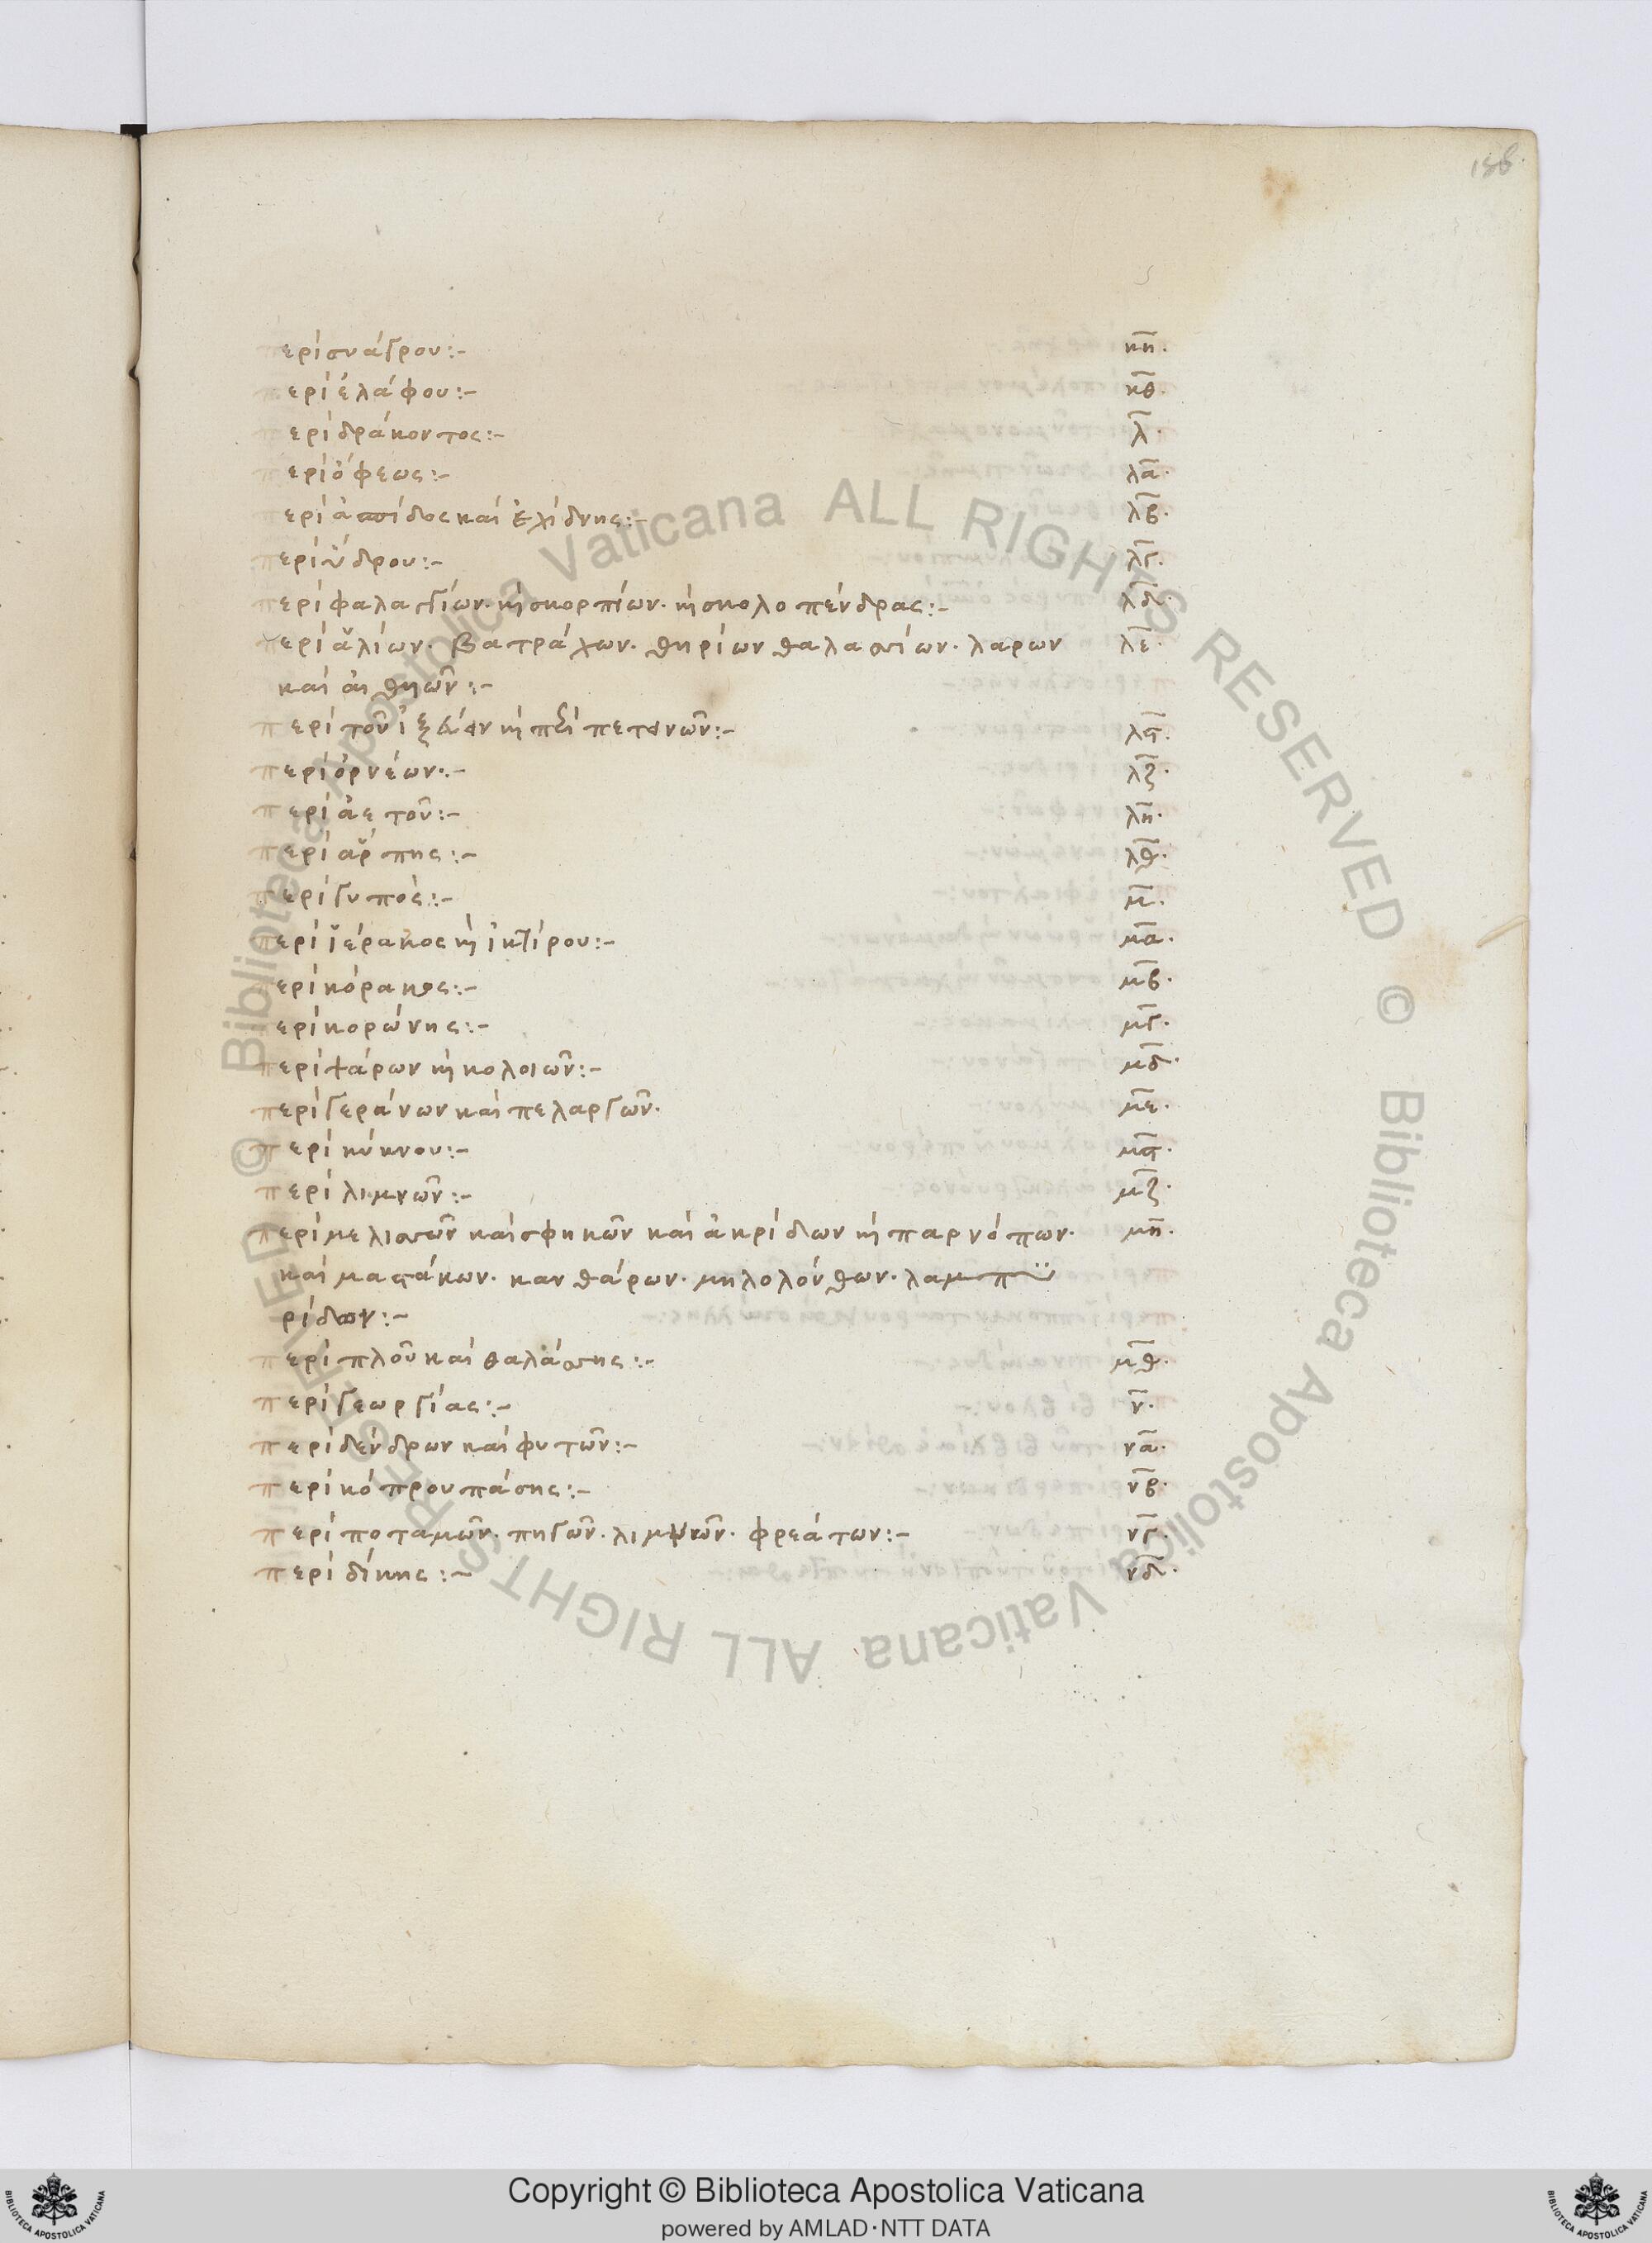 186.
περὶ συάγρου:- κη.
περὶ ἐλάφου:- κθ.
περὶ δράκοντος:- λ.
περὶ ὄφεως:- λα.
περὶ ἀσπίδος καὶ ἐχίδνης:- λβ.
περὶ ὕδρου:- λγ.
περὶ φαλαγγίων. καὶ σκορπίων. καὶ σκολοπένδρας:- λδ.
περὶ ἁλίων. βατράχων. θηρίων θαλασσίων. λάρων λε.
καὶ αἰθηῶν:-
περὶ τοῦ καὶ περὶ πετεινῶν:- λϛ.
περὶ ὀρνέων:- λζ.
περὶ ἀετοῦ:- λη.
περὶ ἅρπης:- λθ.
περὶ γυπός:- μ.
περὶ ἱέρακος καὶ ἰκτίρου:- μα.
περὶ κόρακος:- μβ.
περὶ κορώνης:- μγ.
περὶ ψάρων καὶ κολοιῶν:- μδ.
περὶ γεράνων καὶ πελαργῶν. με.
περὶ κύκνου:- μϛ.
περὶ λιμνῶν:- μζ.
περὶ μελισσῶν καὶ σφηκῶν καὶ ἀκρίδων καὶ παρνόπων. μη.
καὶ μαστάκων. κανθάρων. μηλολόνθων. λαμπυ
ρίδων:-
περὶ πλοῦ καὶ θαλάσσης:- μθ.
περὶ γεωργίας:- ν.
περὶ δένδρων καὶ φυτῶν:- να.
περὶ κόπρου πάσης:- νβ.
περὶ ποταμῶν. πηγῶν. λιμνῶν. φρεάτων:- νγ.
περὶ δίκης:- νδ.
© Biblioteca Apostolica Vaticana ALL RIGHTS RESERVED © Biblioteca Apostolica Vaticana ALL RIGHTS RESERVED
Copyright © Biblioteca Apostolica Vaticana
powered by AMLAD·NTT DATA
BIBLIOTECA APOSTOLICA VATICANA
BIBLIOTECA APOSTOLICA VATICANA